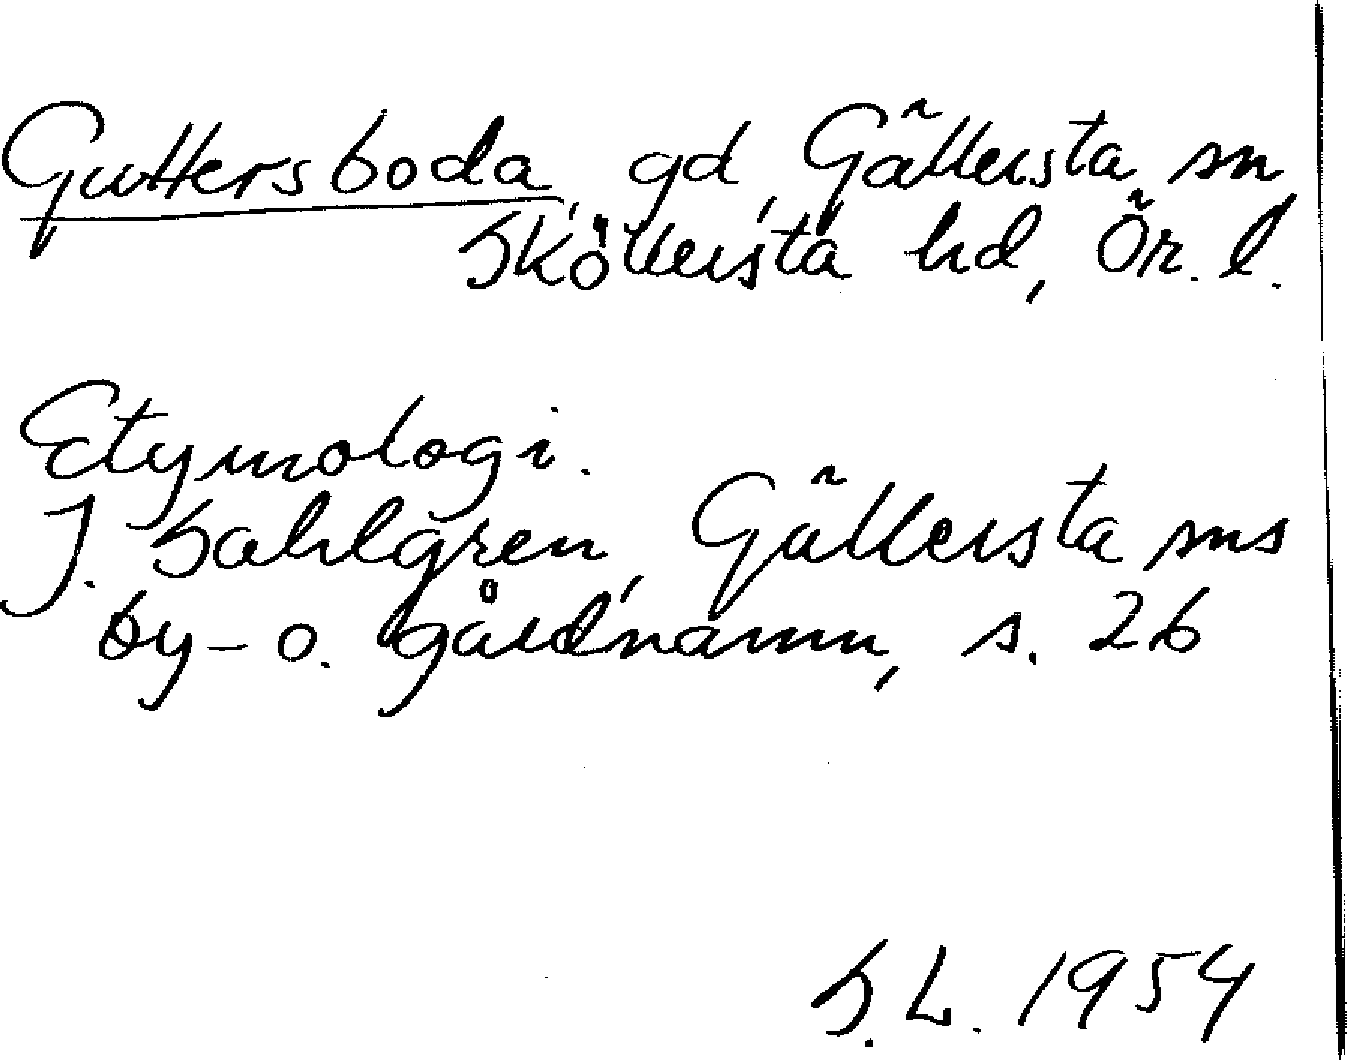 Guttersboda, gd, Gällersta sn,
Sköllersta hd, Ör. l.
Etymologi.
J. Sahlgren, Gällersta sns
by- o. gårdnamn, s. 26
S.L. 1954